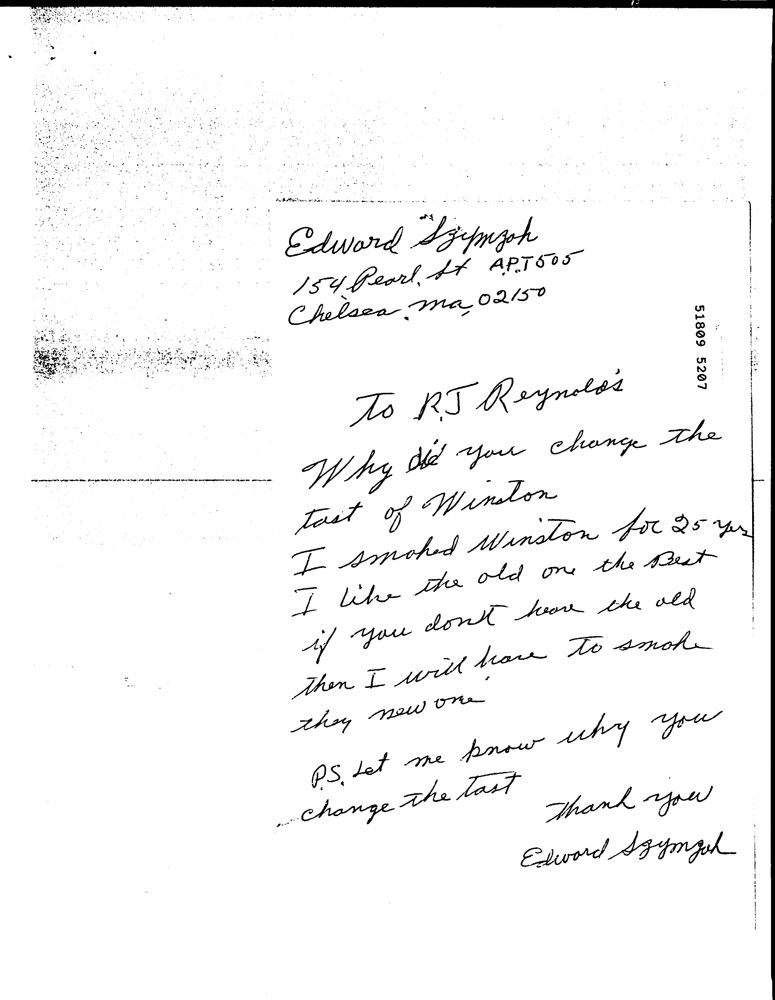 Edward
154 Pearl St APT 505
Chelsea, ma, 02150
51809 5207
To R.J Reynolds
Why did you change the
tast of Winston
I smoked Winston for 25 yrs
I like the old one the Best
if you don't have the old
then I will have To smoke
they new one
P.S. Let me know why you
change the tast
Thank you
Edward